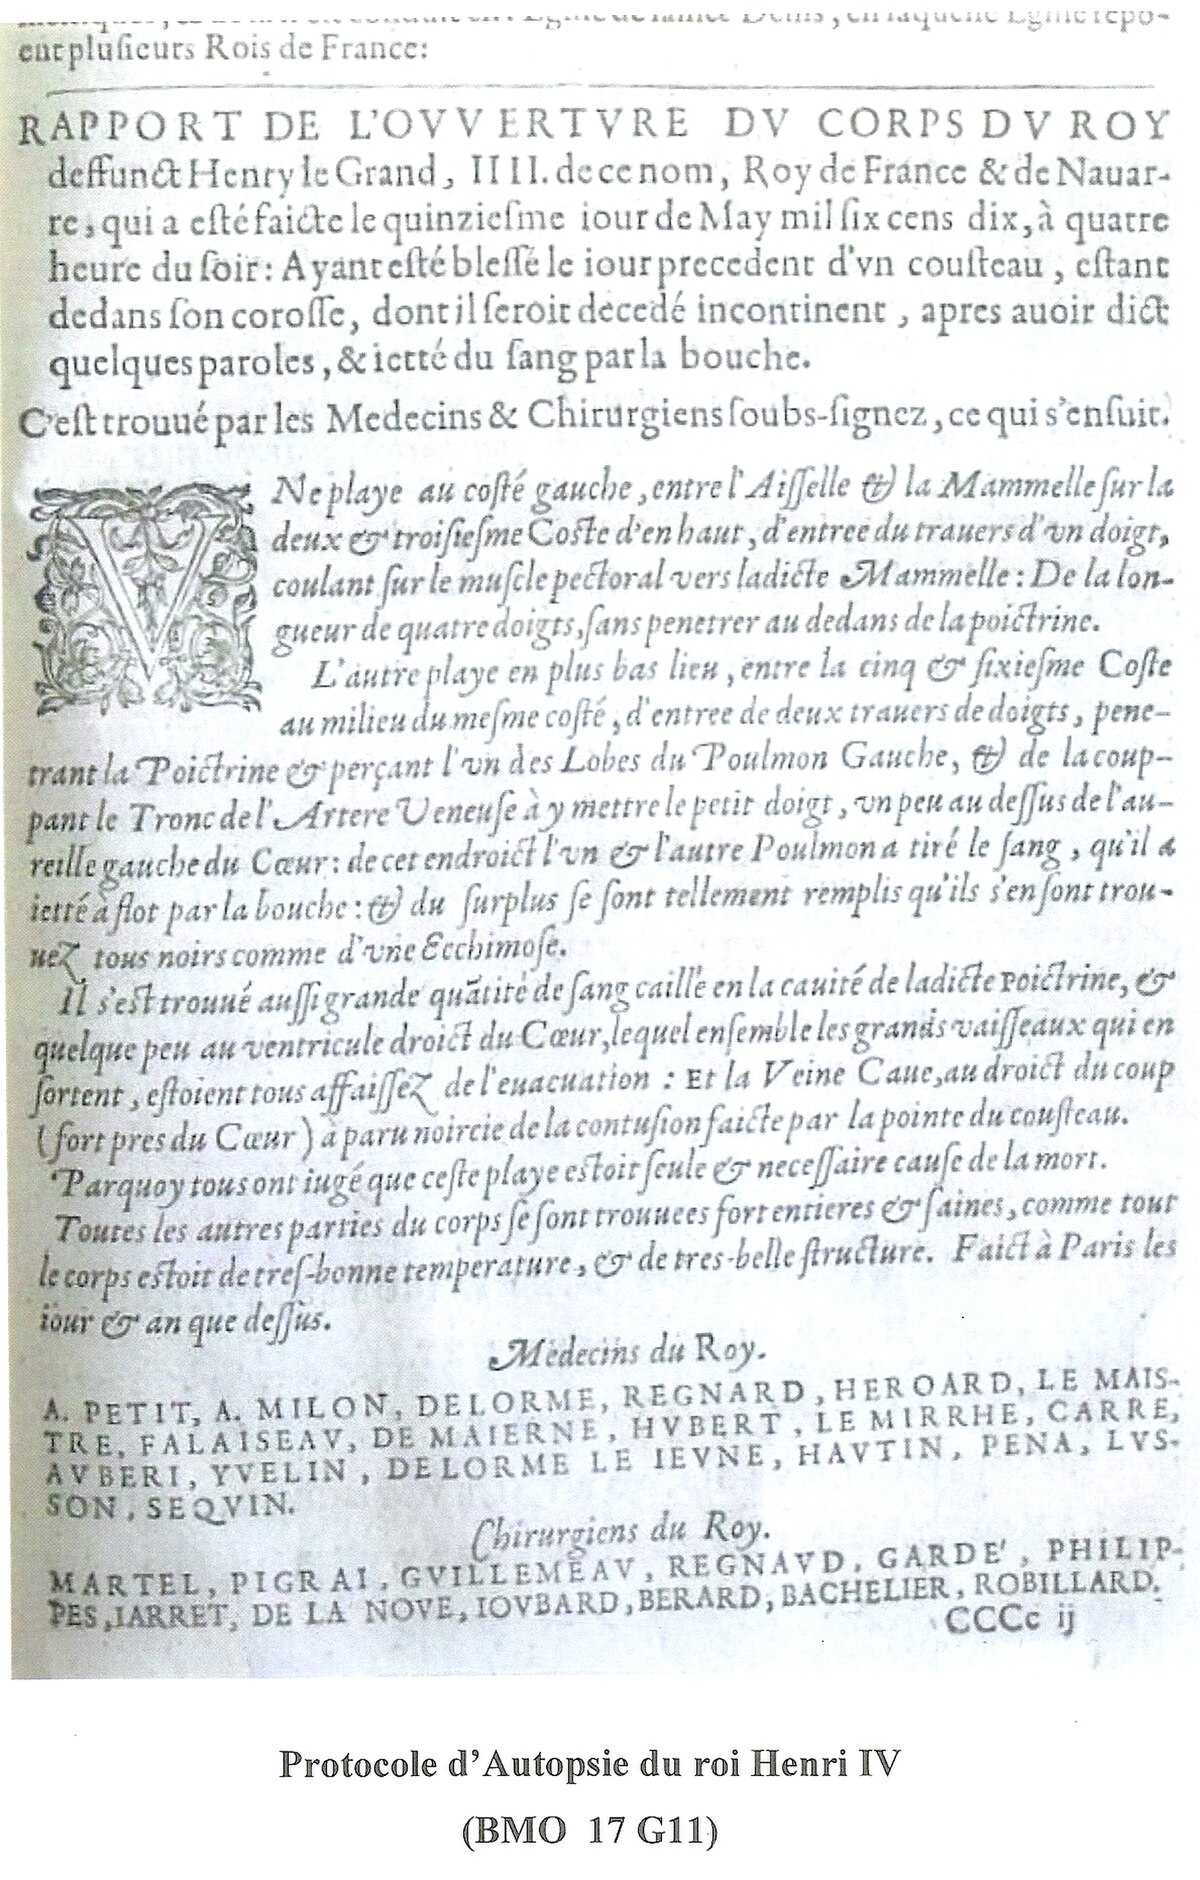 en l'Eglise de sainct Denis, en laquelle Eglise repo-
ent plusieurs Rois de France:
RAPPORT DE L'OVVERTVRE DV CORPS DV ROY
deffunct Henry le Grand, IIII. de ce nom, Roy de France & de Nauar-
re, qui a esté faicte le quinziesme iour de May mil six cens dix, à quatre
heure du soir: Ayant esté blessé le iour precedent d'vn cousteau, estant
dedans son corosse, dont il seroit decedé incontinent, apres auoir dict
quelques paroles, & ietté du sang par la bouche.
C'est trouué par les Medecins & Chirurgiens soubs-signez, ce qui s'ensuit.
VNe playe au costé gauche, entre l'Aisselle & la Mammelle sur la
deux & troisiesme Coste d'en haut, d'entree du trauers d'vn doigt,
coulant sur le muscle pectoral vers ladicte Mammelle: De la lon-
gueur de quatre doigts, sans penetrer au dedans de la poictrine.
L'autre playe en plus bas lieu, entre la cinq & sixiesme Coste
au milieu du mesme costé, d'entree de deux trauers de doigts, pene-
trant la Poictrine & perçant l'vn des Lobes du Poulmon Gauche, & de la coup-
pant le Tronc de l'Artere Veneuse à y mettre le petit doigt, vn peu au dessus de l'au-
reille gauche du Cœur: de cet endroict l'vn & l'autre Poulmon a tiré le sang, qu'il a
ietté à flot par la bouche: & du surplus se sont tellement remplis qu'ils s'en sont trou-
uez tous noirs comme d'vne Ecchimose.
Il s'est trouué aussi grande quãtité de sang caillé en la cauité de ladicte Poictrine, &
quelque peu au ventricule droict du Cœur, lequel ensemble les grands vaisseaux qui en
sortent, estoient tous affaissez de l'euacuation: Et la Veine Caue, au droict du coup
(fort pres du Cœur) à paru noircie de la contusion faicte par la pointe du cousteau.
Parquoy tous ont iugé que ceste playe estoit seule & necessaire cause de la mort.
Toutes les autres parties du corps se sont trouuees fort entieres & saines, comme tout
le corps estoit de tres-bonne temperature, & de tres-belle structure. Faict à Paris les
iour & an que dessus.
Medecins du Roy.
A. PETIT, A. MILON, DELORME, REGNARD, HEROARD, LE MAIS-
TRE, FALAISEAV, DE MAIERNE, HVBERT, LE MIRRHE, CARRE,
AVBERI, YVELIN, DELORME LE IEVNE, HAVTIN, PENA, LVS-
SON, SEQVIN.
Chirurgiens du Roy.
MARTEL, PIGRAI, GVILLEMEAV, REGNAVD, GARDE', PHILIP-
PES, IARRET, DE LA NOVE, IOVBARD, BERARD, BACHELIER, ROBILLARD.
CCCc ij
Protocole d'Autopsie du roi Henri IV
(BMO 17 G11)